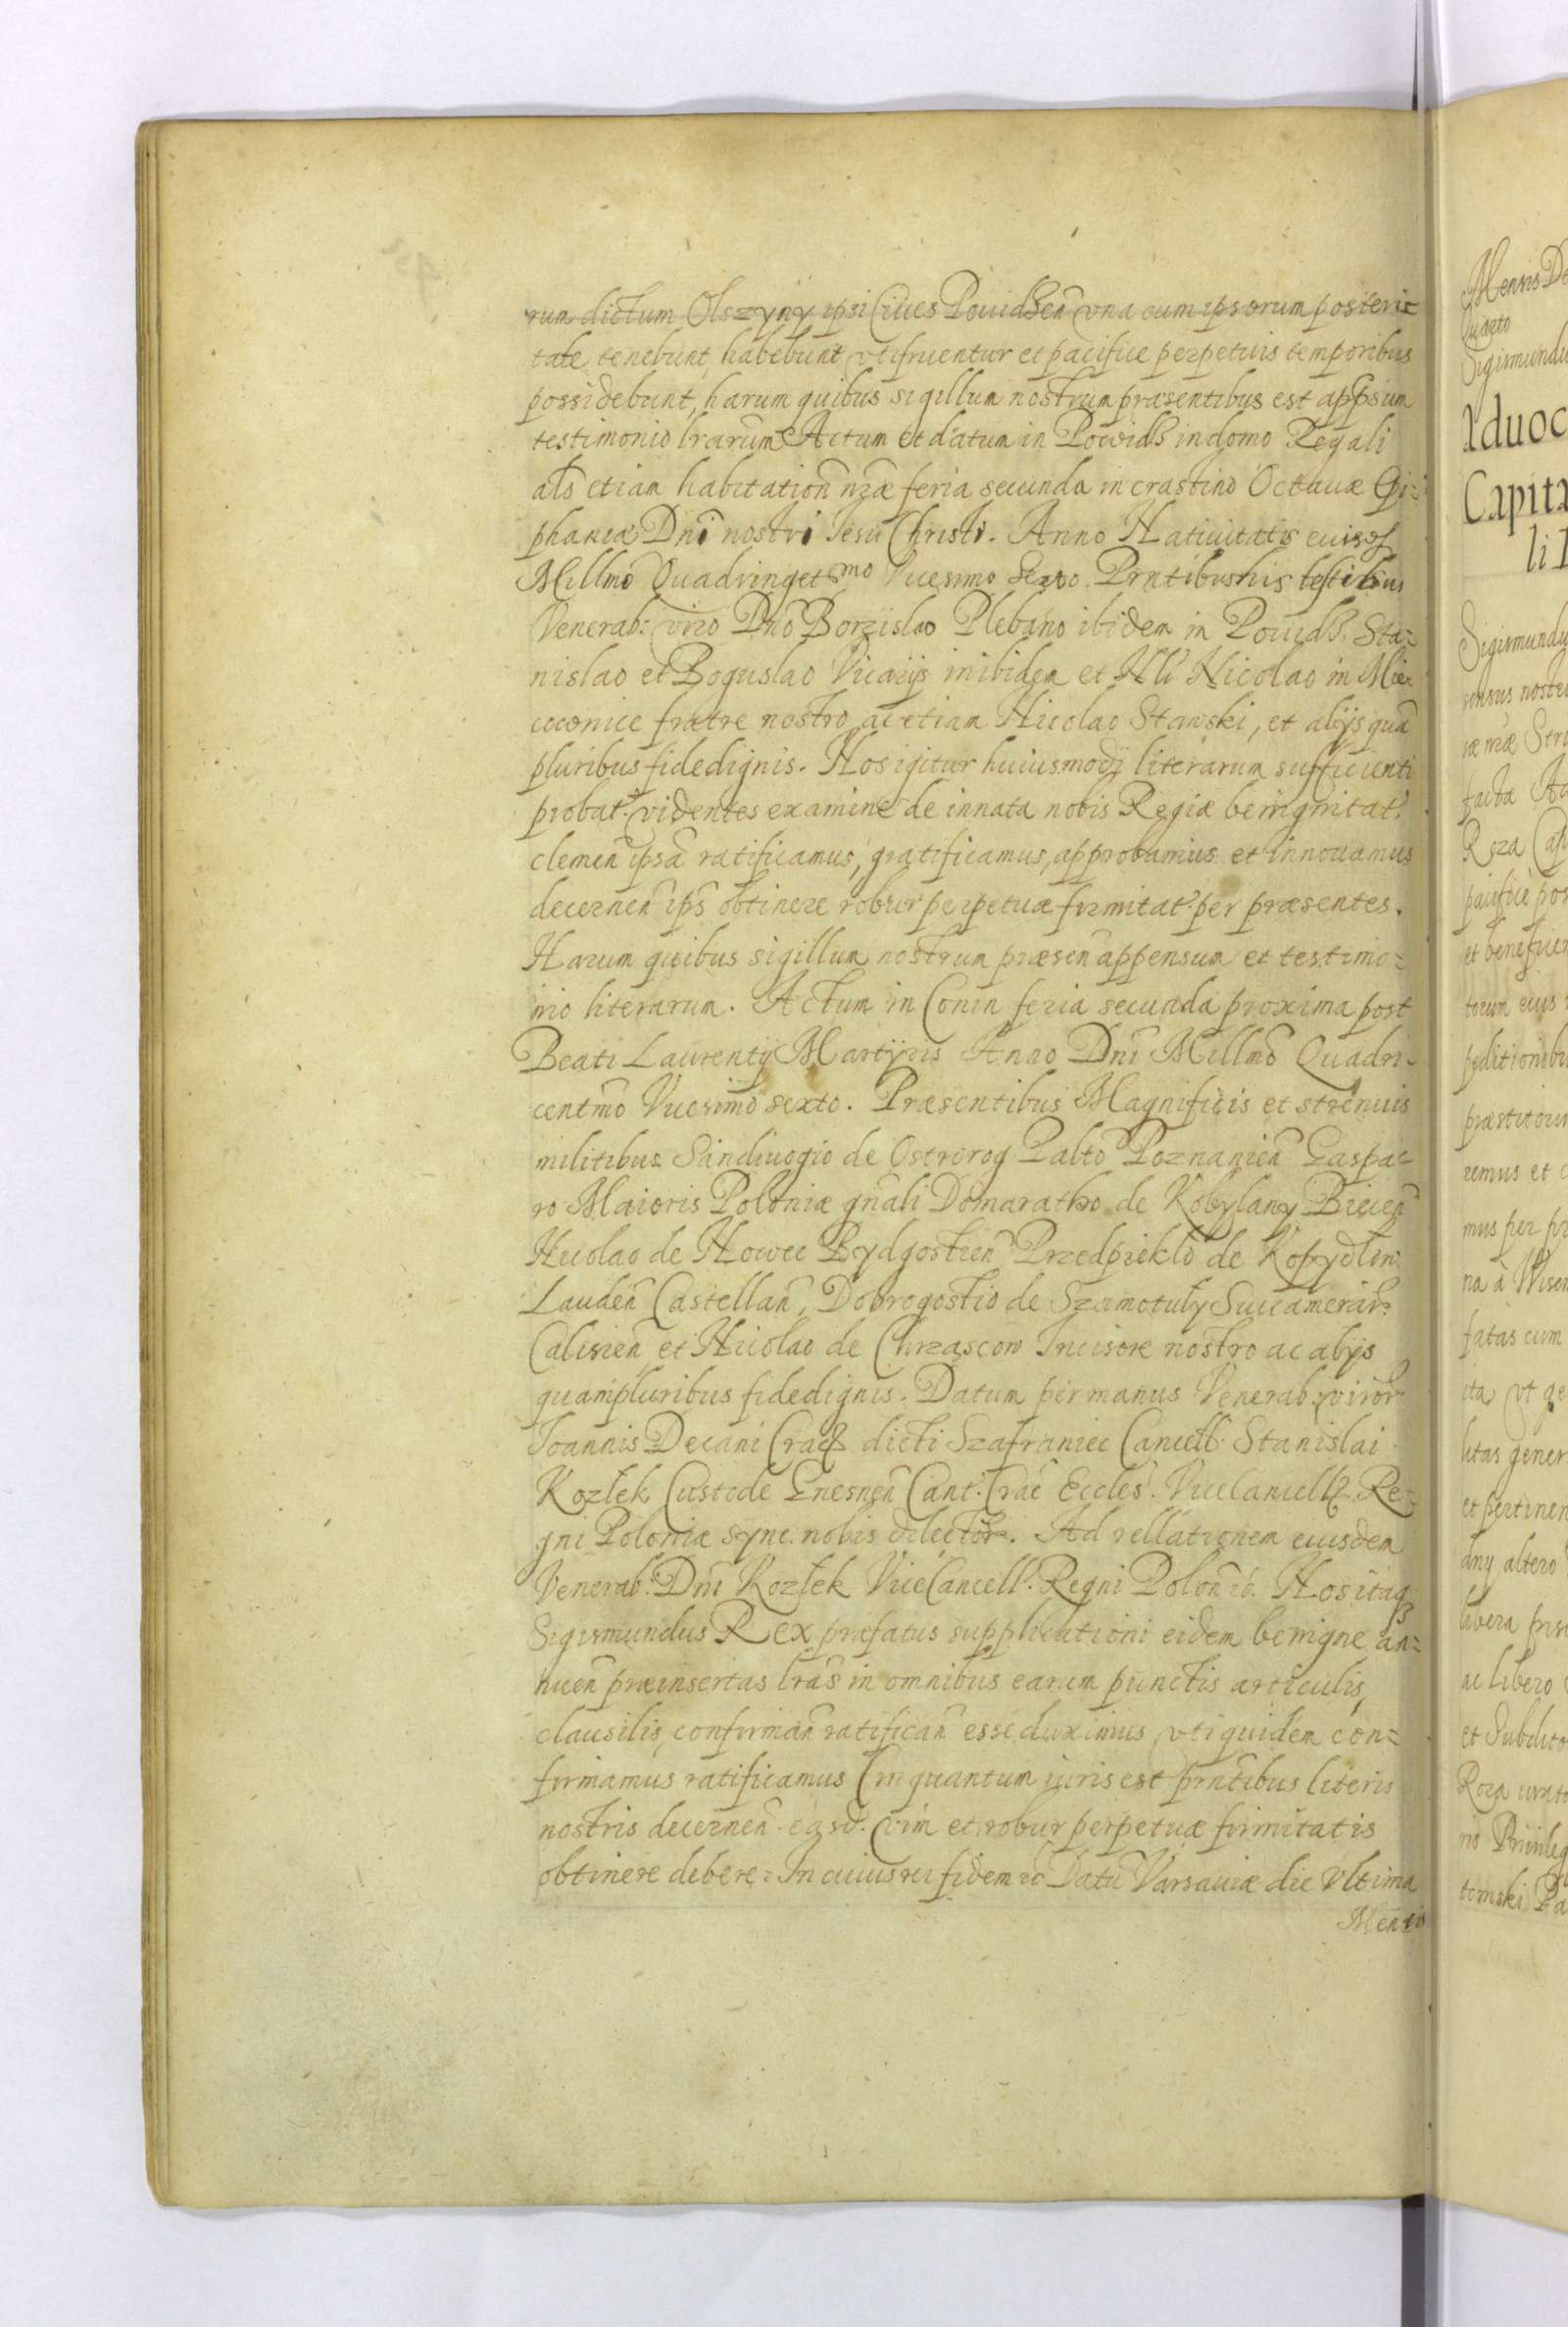 rum dictum Olszyny ipsi Ciues Pouidzen̄ vna cum ipsorum posteri=
tate tenebunt, habebunt vtifruentur et pacifice perpetuis temporibus
possidebunt, harum quibus sigillum nostrum praesentibus est appsum
testimonio lrarum Actum et datum in Powidz in domo Regali
als etiam habitation̄ nrae feria secunda in crastino Octauae Epi=
phaniae Dni nostri Iesu Christi. Anno Natiuitatis eius
Millmo Quadringetsmo Vicesimo Sexto. Prntibus his testibus
Venerab: viro Dno Borzislao Plebano ibidem in Pouidz. Sta=
nislao et Boguslao Vicarijs inibidem et Nicolao in Mie
cownice fratre nostro, ac etiam Nicolao Stawski, et alijs qua
pluribus fidedignis. Nos igitur huiusmodi literarum sufficienti
probat: videntes examine de innata nobis Regiae benignitat:
clemen̄ ipsa ratificamus, gratificamus, approbamus et innouamus
decernen̄ ips obtinere robur perpetuae firmitat: per praesentes.
Harum quibus sigillum nostrum praesen appensum et testimo=
nio literarum. Actum in Conin feria secunda proxima post
Beati Laurentij Martyris Anno Dni Millmo Quadri=
centmo Vicesimo sexto. Praesentibus Magnificis et strenuis
militibus Sandiuogio de Ostrorog Palto Poznanien̄ Gaspa=
ro Maioris Poloniae gnali Domaratho de Kobylany Biecen̄
Nicolao de Nowec Bydgostien̄ Przedpieklo de Kopydlow
Lauden̄ Castellan̄, Dobrogostio de Szamotuly Succamerar:
Calisien̄ et Nicolao de Chrzascow Incisore nostro ac alijs
quampluribus fidedignis. Datum per manus Venerab: viror
Ioannis Decani Crac dicti Szafraniec Cancell: Stanislai
Kozlek Custode Gnesnen̄ Cant: Crac Eccles: Vicecancell: Re=
gni Poloniae sync. nobis dilector. Ad rellationem eiusdem
Venerab: Dni Kozlek ViceCancell: Regni Polon̄ Nos itaq
Sigismundus Rex praefatus supplicationi eidem benigne an=
nuen̄ praeinsertas lras in omnibus earum punctis articulis,
clausilis, confirman̄ ratifican̄ esse duximus vti quidem con=
firmamus ratificamus (inquantum iuris est prntibus literis
nostris decernen̄ easd. vim et robur perpetuae firmitatis
obtinere debere. In cuius rei fidem Datu Varsauiae die Vltima
Mensis
Mensis De
Quarto
Sigismundu
Aduoc
Capita
li
Sigismundu
sensus nostri
Roza Cap
pacifice pos
torum eius
peditionibu
praestitoru
remus et
mus per pr
na à Wisen
fatas cum
ita vt ge
litas gener
et pertinen
altero
libera
ac libero
et Subdito
Roza
ris Priuileg
tomski Pa